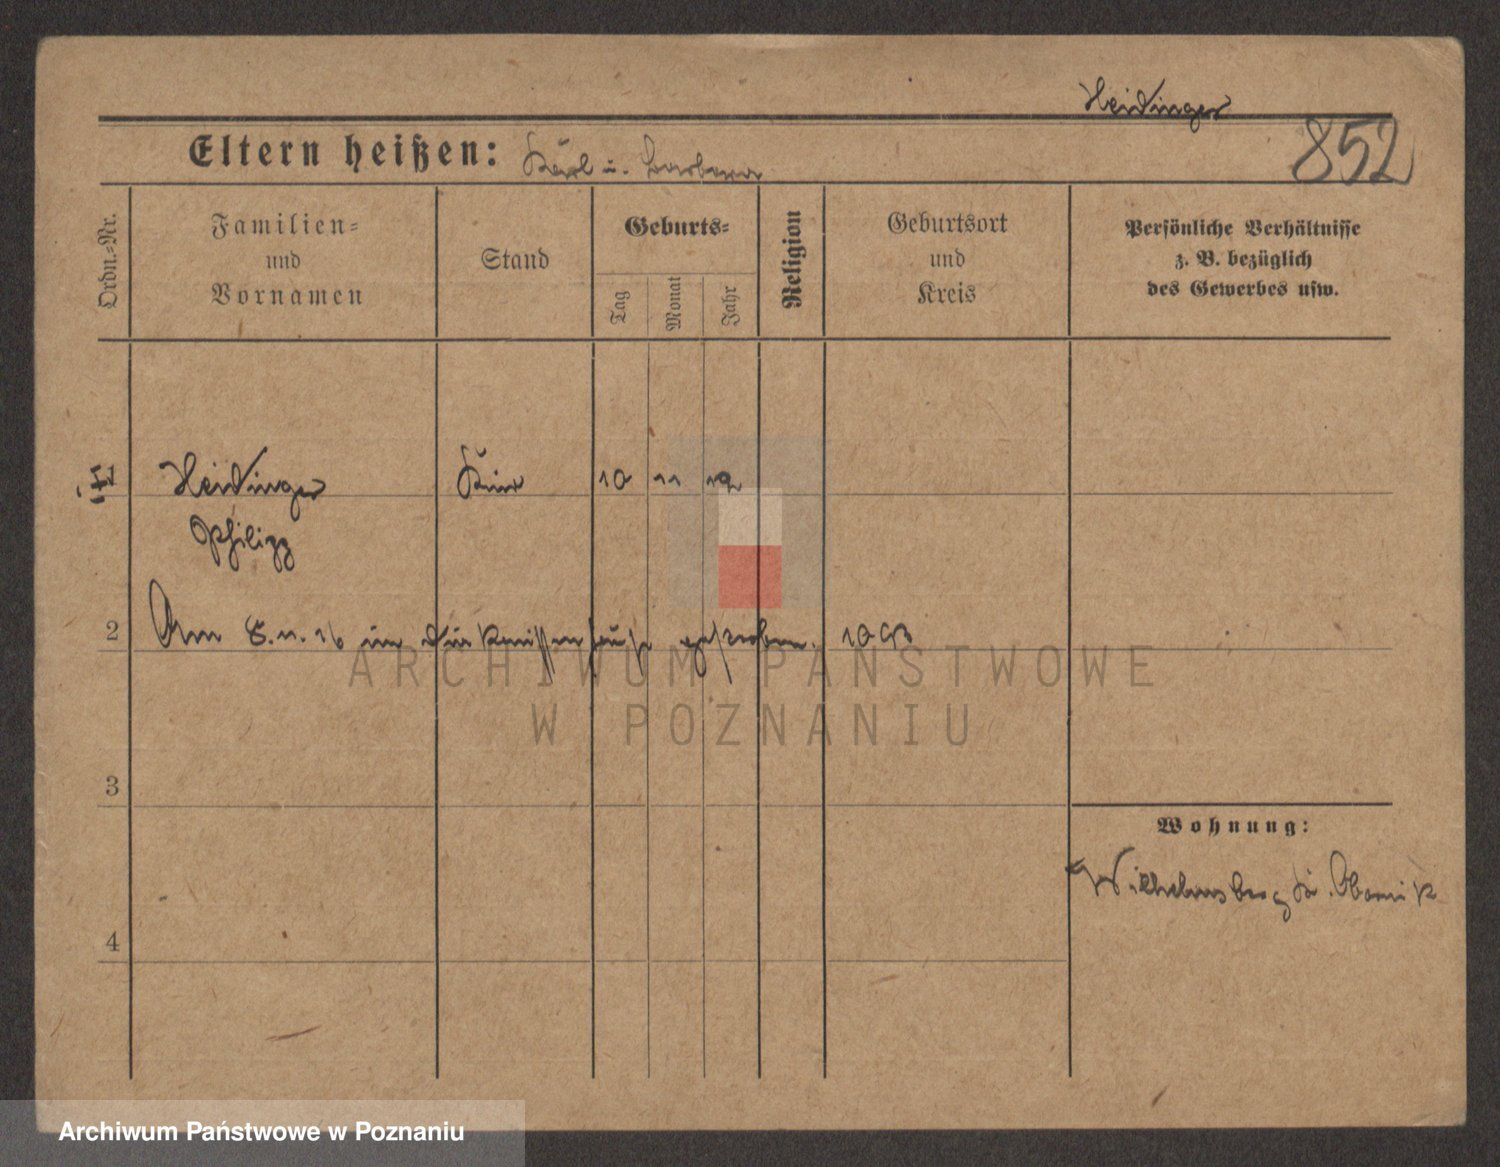 Heidinger
852
Eltern heißen: Karl u. Barbara
Ordn.-Nr.
Familien-
und
Vornamen
Stand
Geburts-
Tag
Monat
Jahr
Religion
Geburtsort
und
Kreis
Persönliche Verhältnisse
z. B. bezüglich
des Gewerbes usw.
1
Heidinger
10 11
Philipp
2
Am 8. 11. 16 im gestorben.
ARCHIWUM PAŃSTWOWE
W POZNANIU
3
Wohnung:
Wilhelmsberg Kr. Obornik
4
Archiwum Państwowe w Poznaniu